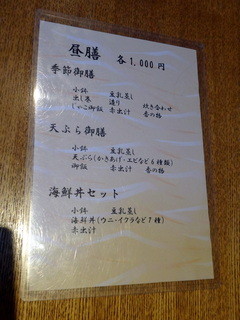 昼膳 各1,000円
季節御膳
小鉢 豆乳蒸し
出し巻 造り 炊き合わせ
じゃこ御飯 赤出汁 香の物
天ぷら御膳
小鉢 豆乳蒸し
天ぷら(かきあげ・エビなど6種類)
御飯 赤出汁 香の物
海鮮丼セット
小鉢 豆乳蒸し
海鮮丼(ウニ・イクラなど7種)
赤出汁